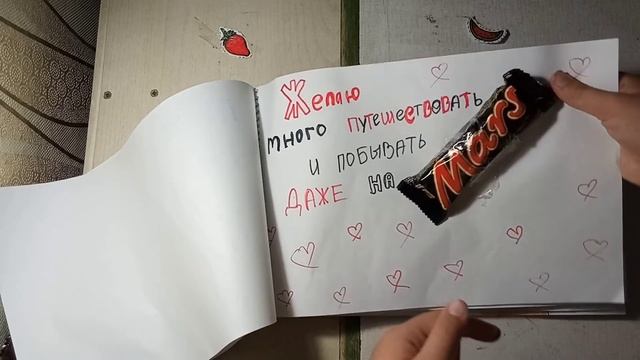 Желаю
много путешествовать
и побывать
даже на
Mars